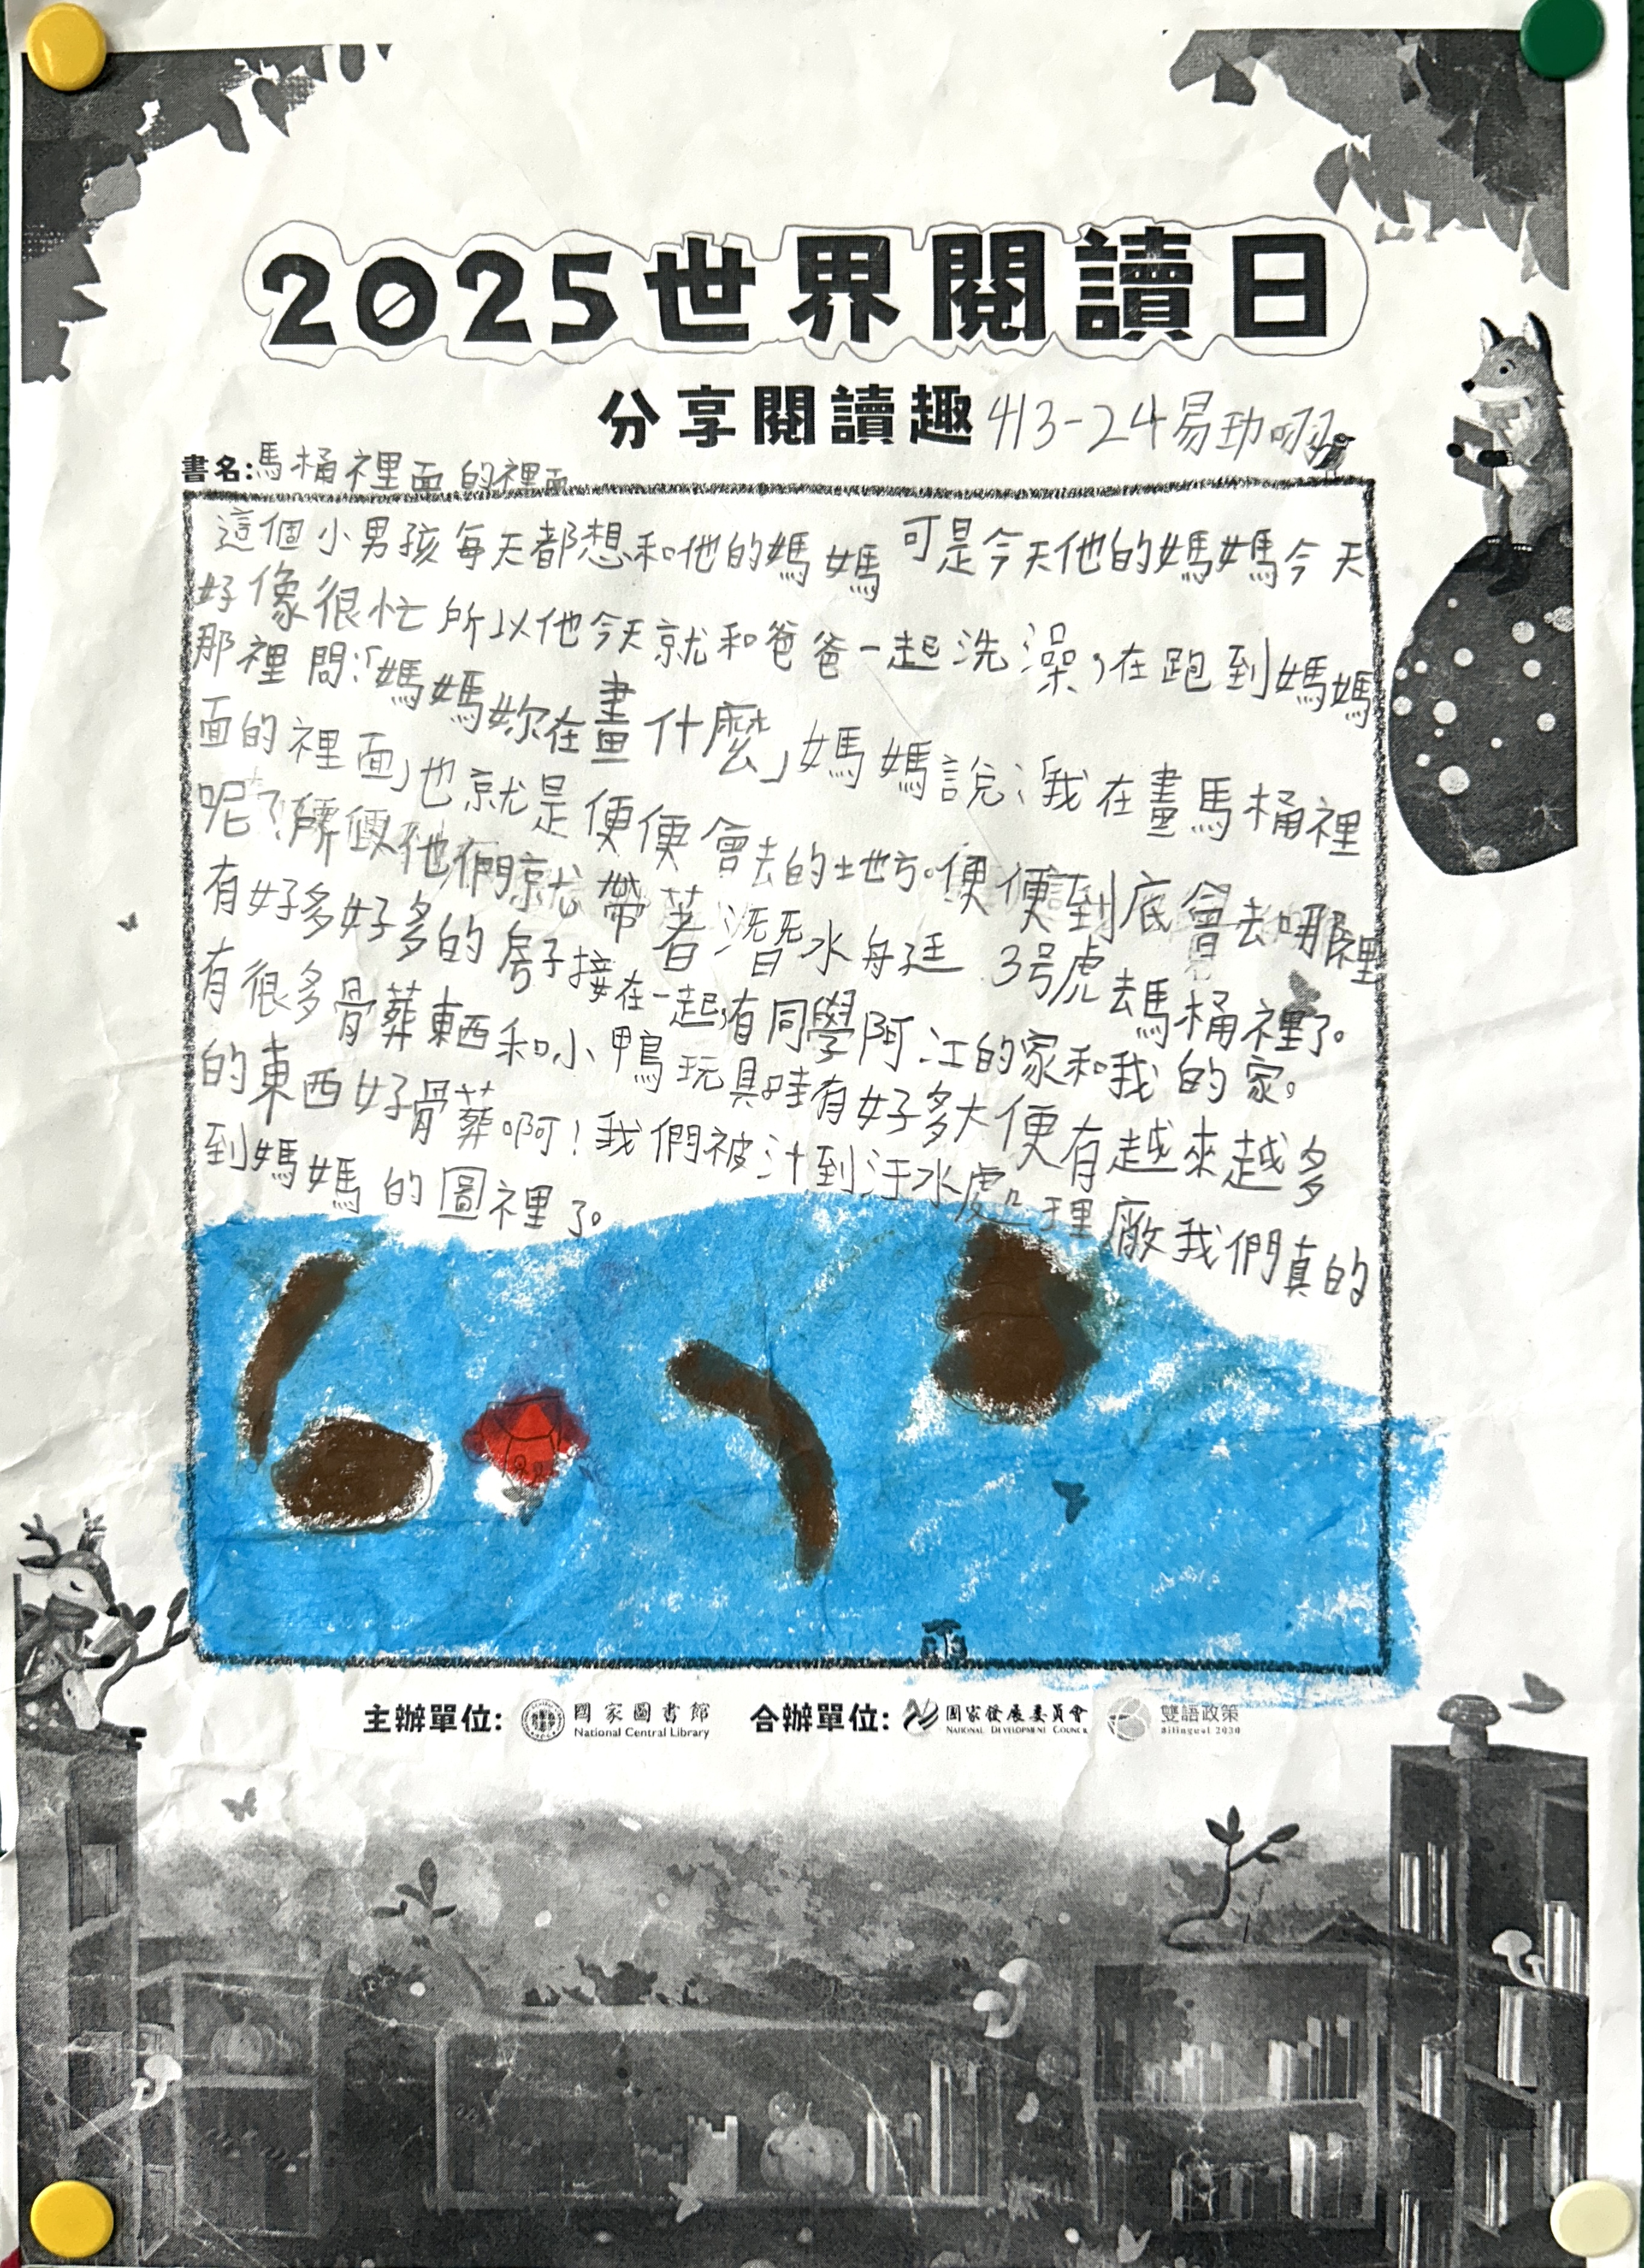 2025世界閱讀日
分享閱讀趣 413-24易玏呦
書名:馬桶裡面的裡面
這個小男孩每天都想和他的媽媽 可是今天他的媽媽今天
好像很忙所以他今天就和爸爸一起洗澡,在跑到媽媽
那裡問:「媽媽妳在畫什麼」媽媽說:「我在畫馬桶裡
面的裡面」也就是便便會去的地方。便便到底會去哪裡
呢?他們就帶著潛水舟廷3号虎去馬桶裡了。
有好多好多的房子接在一起,有同學阿江的家和我的家。
有很多骨葬東西和小鴨玩具哇有好多大便有越來越多
的東西好骨葬啊!我們被汁到汙水處理廠我們真的
到媽媽的圖裡了。
主辦單位: 國家圖書館 National Central Library 合辦單位: 國家發展委員會 National Development Council 雙語政策 Bilingual 2030